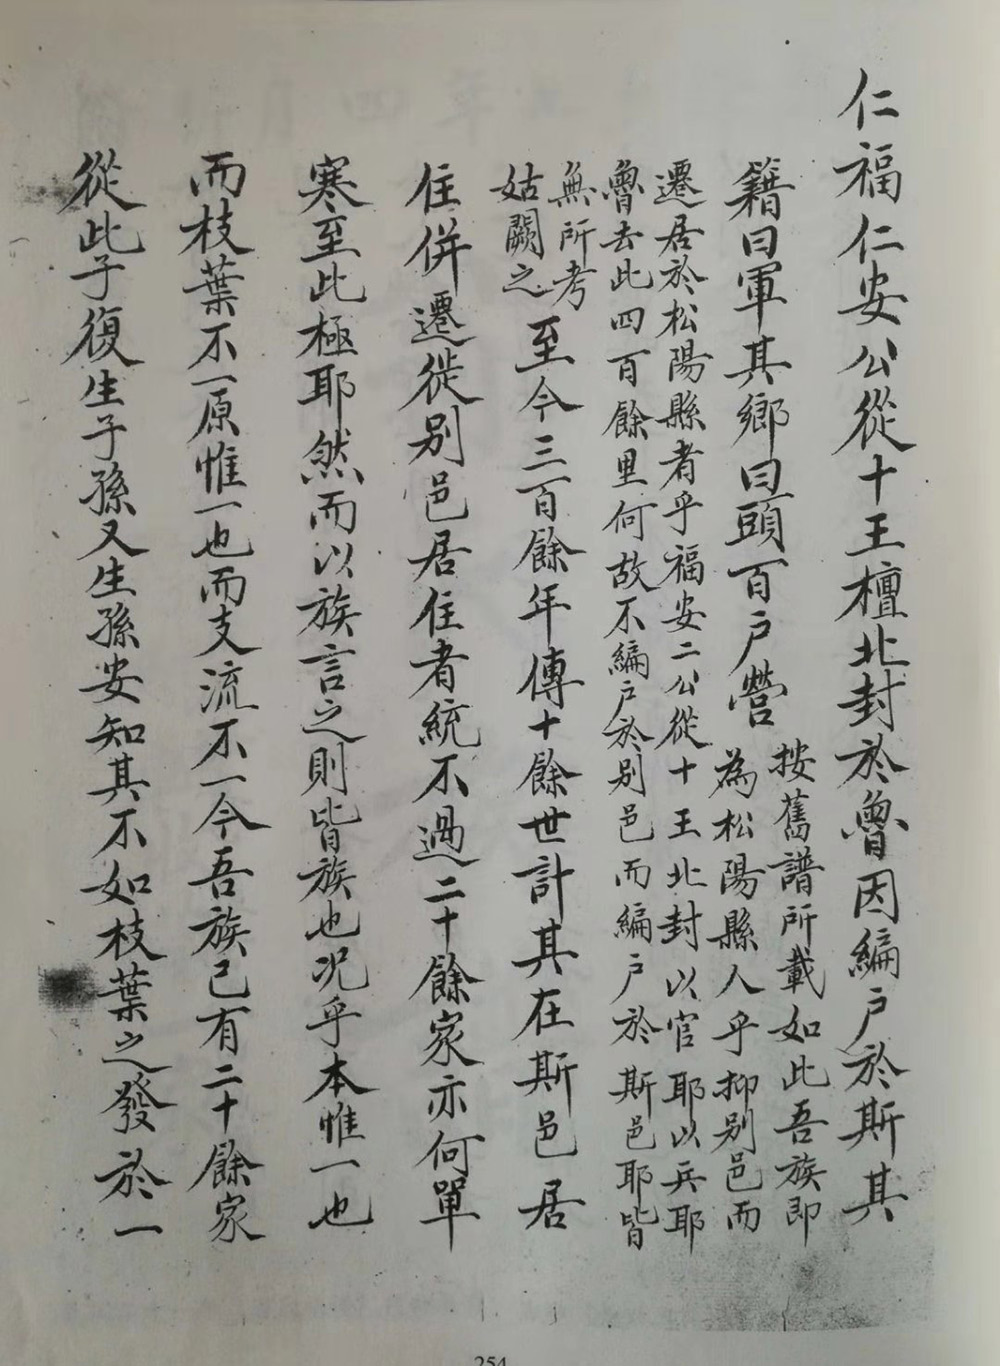 仁福仁安公從十王檀北封於魯因編戶於斯其
籍曰軍其鄉曰頭百戶營
按舊譜所載如此吾族即
為松陽縣人乎抑别邑而
遷居於松陽縣者乎福安二公從十王北封以官耶以兵耶
魯去此四百餘里何故不編戶於别邑而編戶於斯邑耶皆
無所考
姑闕之
至今三百餘年傳十餘世計其在斯邑居
住併遷徙别邑居住者統不過二十餘家亦何單
寒至此極耶然而以族言之則皆族也况乎本惟一也
而枝葉不一原惟一也而支流不一今吾族已有二十餘家
從此子復生子孫又生孫安知其不如枝葉之發於一
254